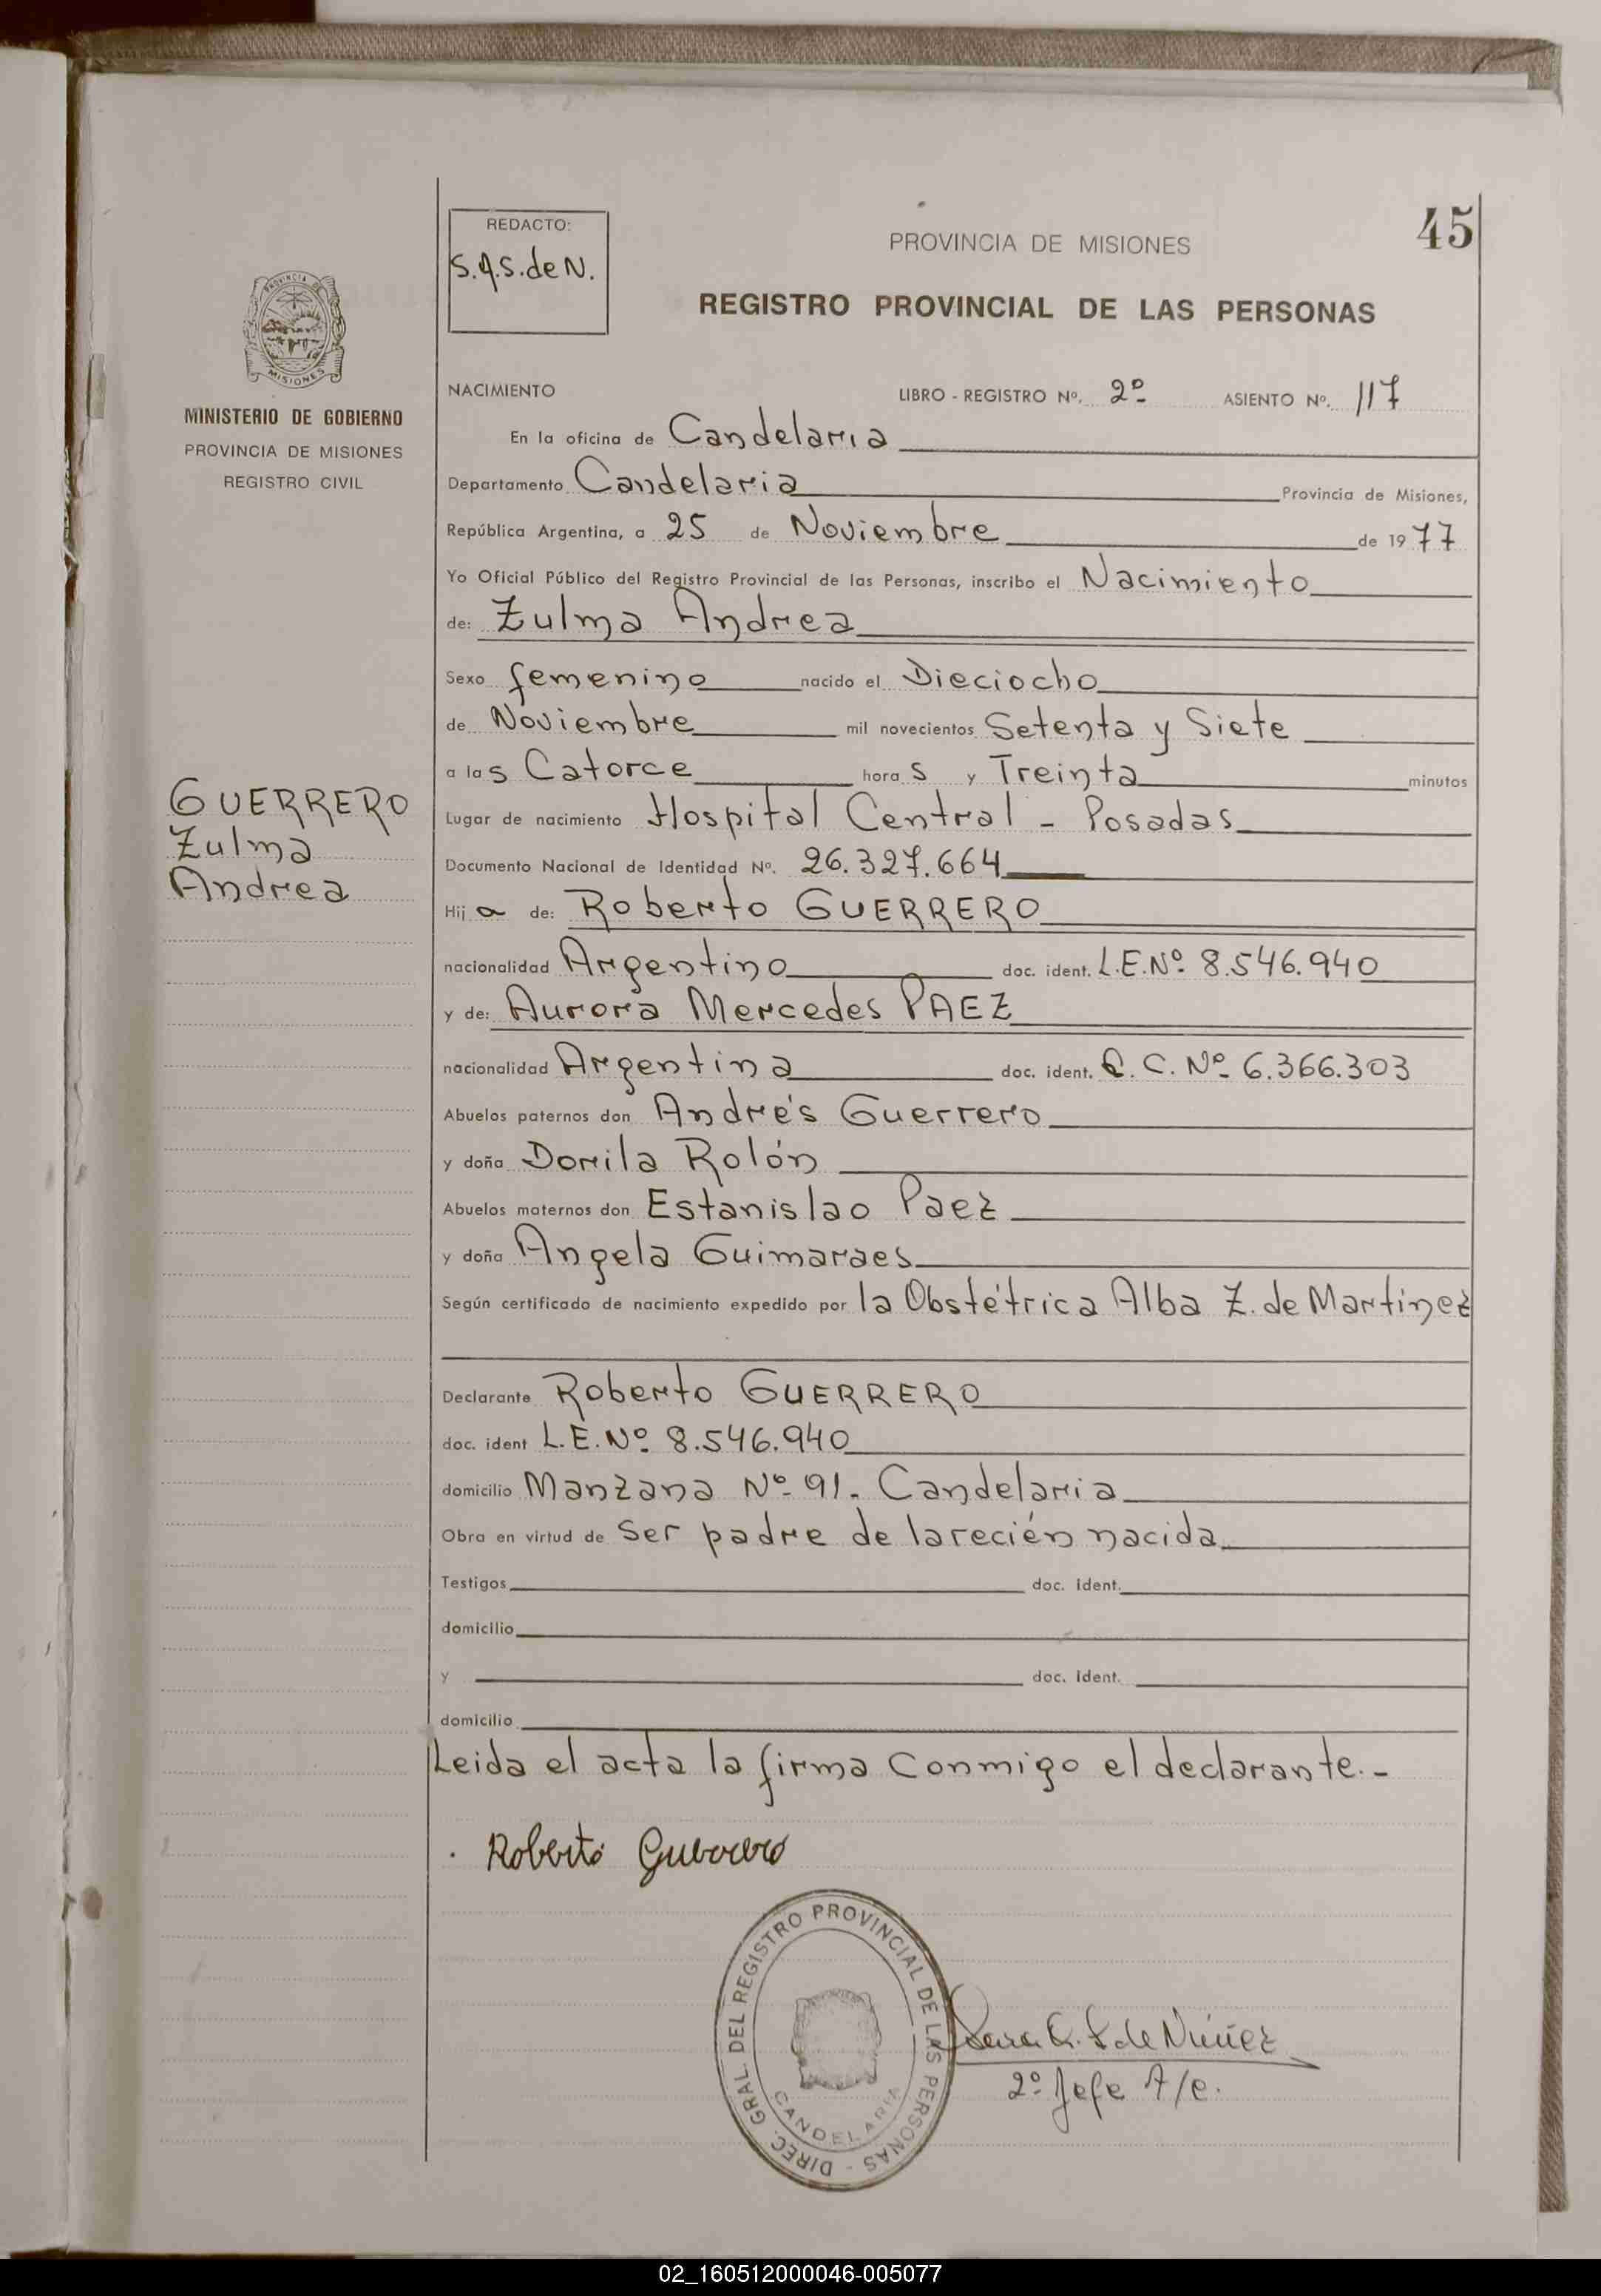 45
REDACTO:
S.A.S.de N.
PROVINCIA DE MISIONES
REGISTRO PROVINCIAL DE LAS PERSONAS
PROVINCIA DE
MISIONES
MINISTERIO DE GOBIERNO
PROVINCIA DE MISIONES
REGISTRO CIVIL
GUERRERO
Zulma
Andrea
NACIMIENTO LIBRO - REGISTRO Nº. 2º ASIENTO Nº. 117
En la oficina de Candelaria
Departamento Candelaria Provincia de Misiones,
República Argentina, a 25 de Noviembre de 1977
Yo Oficial Público del Registro Provincial de las Personas, inscribo el Nacimiento
de: Zulma Andrea
Sexo femenino nacido el Dieciocho
de Noviembre mil novecientos Setenta y Siete
a las Catorce horas y Treinta minutos
Lugar de nacimiento Hospital Central - Posadas
Documento Nacional de Identidad Nº. 26.327.664
Hija de: Roberto GUERRERO
nacionalidad Argentino doc. ident. L.E.Nº 8.546.940
y de: Aurora Mercedes PAEZ
nacionalidad Argentina doc. ident. C. Nº 6.366.303
Abuelos paternos don Andrés Guerrero
y doña Dorila Rolón
Abuelos maternos don Estanislao Paez
y doña Angela Guimaraes
Según certificado de nacimiento expedido por la Obstétrica Alba Z. de Martinez
Declarante Roberto GUERRERO
doc. ident L.E.Nº 8.546.940
domicilio Manzana Nº 91. Candelaria
Obra en virtud de ser padre de la recién nacida
Testigos doc. ident.
domicilio
y doc. ident.
domicilio
Leida el acta la firma conmigo el declarante.-
Roberto Guerrero
DIREC. GRAL. DEL REGISTRO PROVINCIAL DE LAS PERSONAS -
CANDELARIA
Sara de Núñez
2º Jefe A/c.
02_160512000046-005077